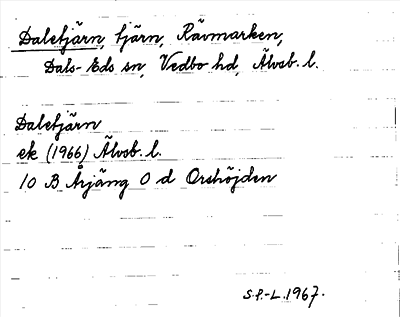 Daletjärn, tjärn, Rävmarken,
Dals-Eds sn, Vedbo hd, Älvsb. l.
Daletjärn
ek (1966) Älvsb. l.
10 B Årjäng 0 d Orshöjden
S.P.-L. 1967.